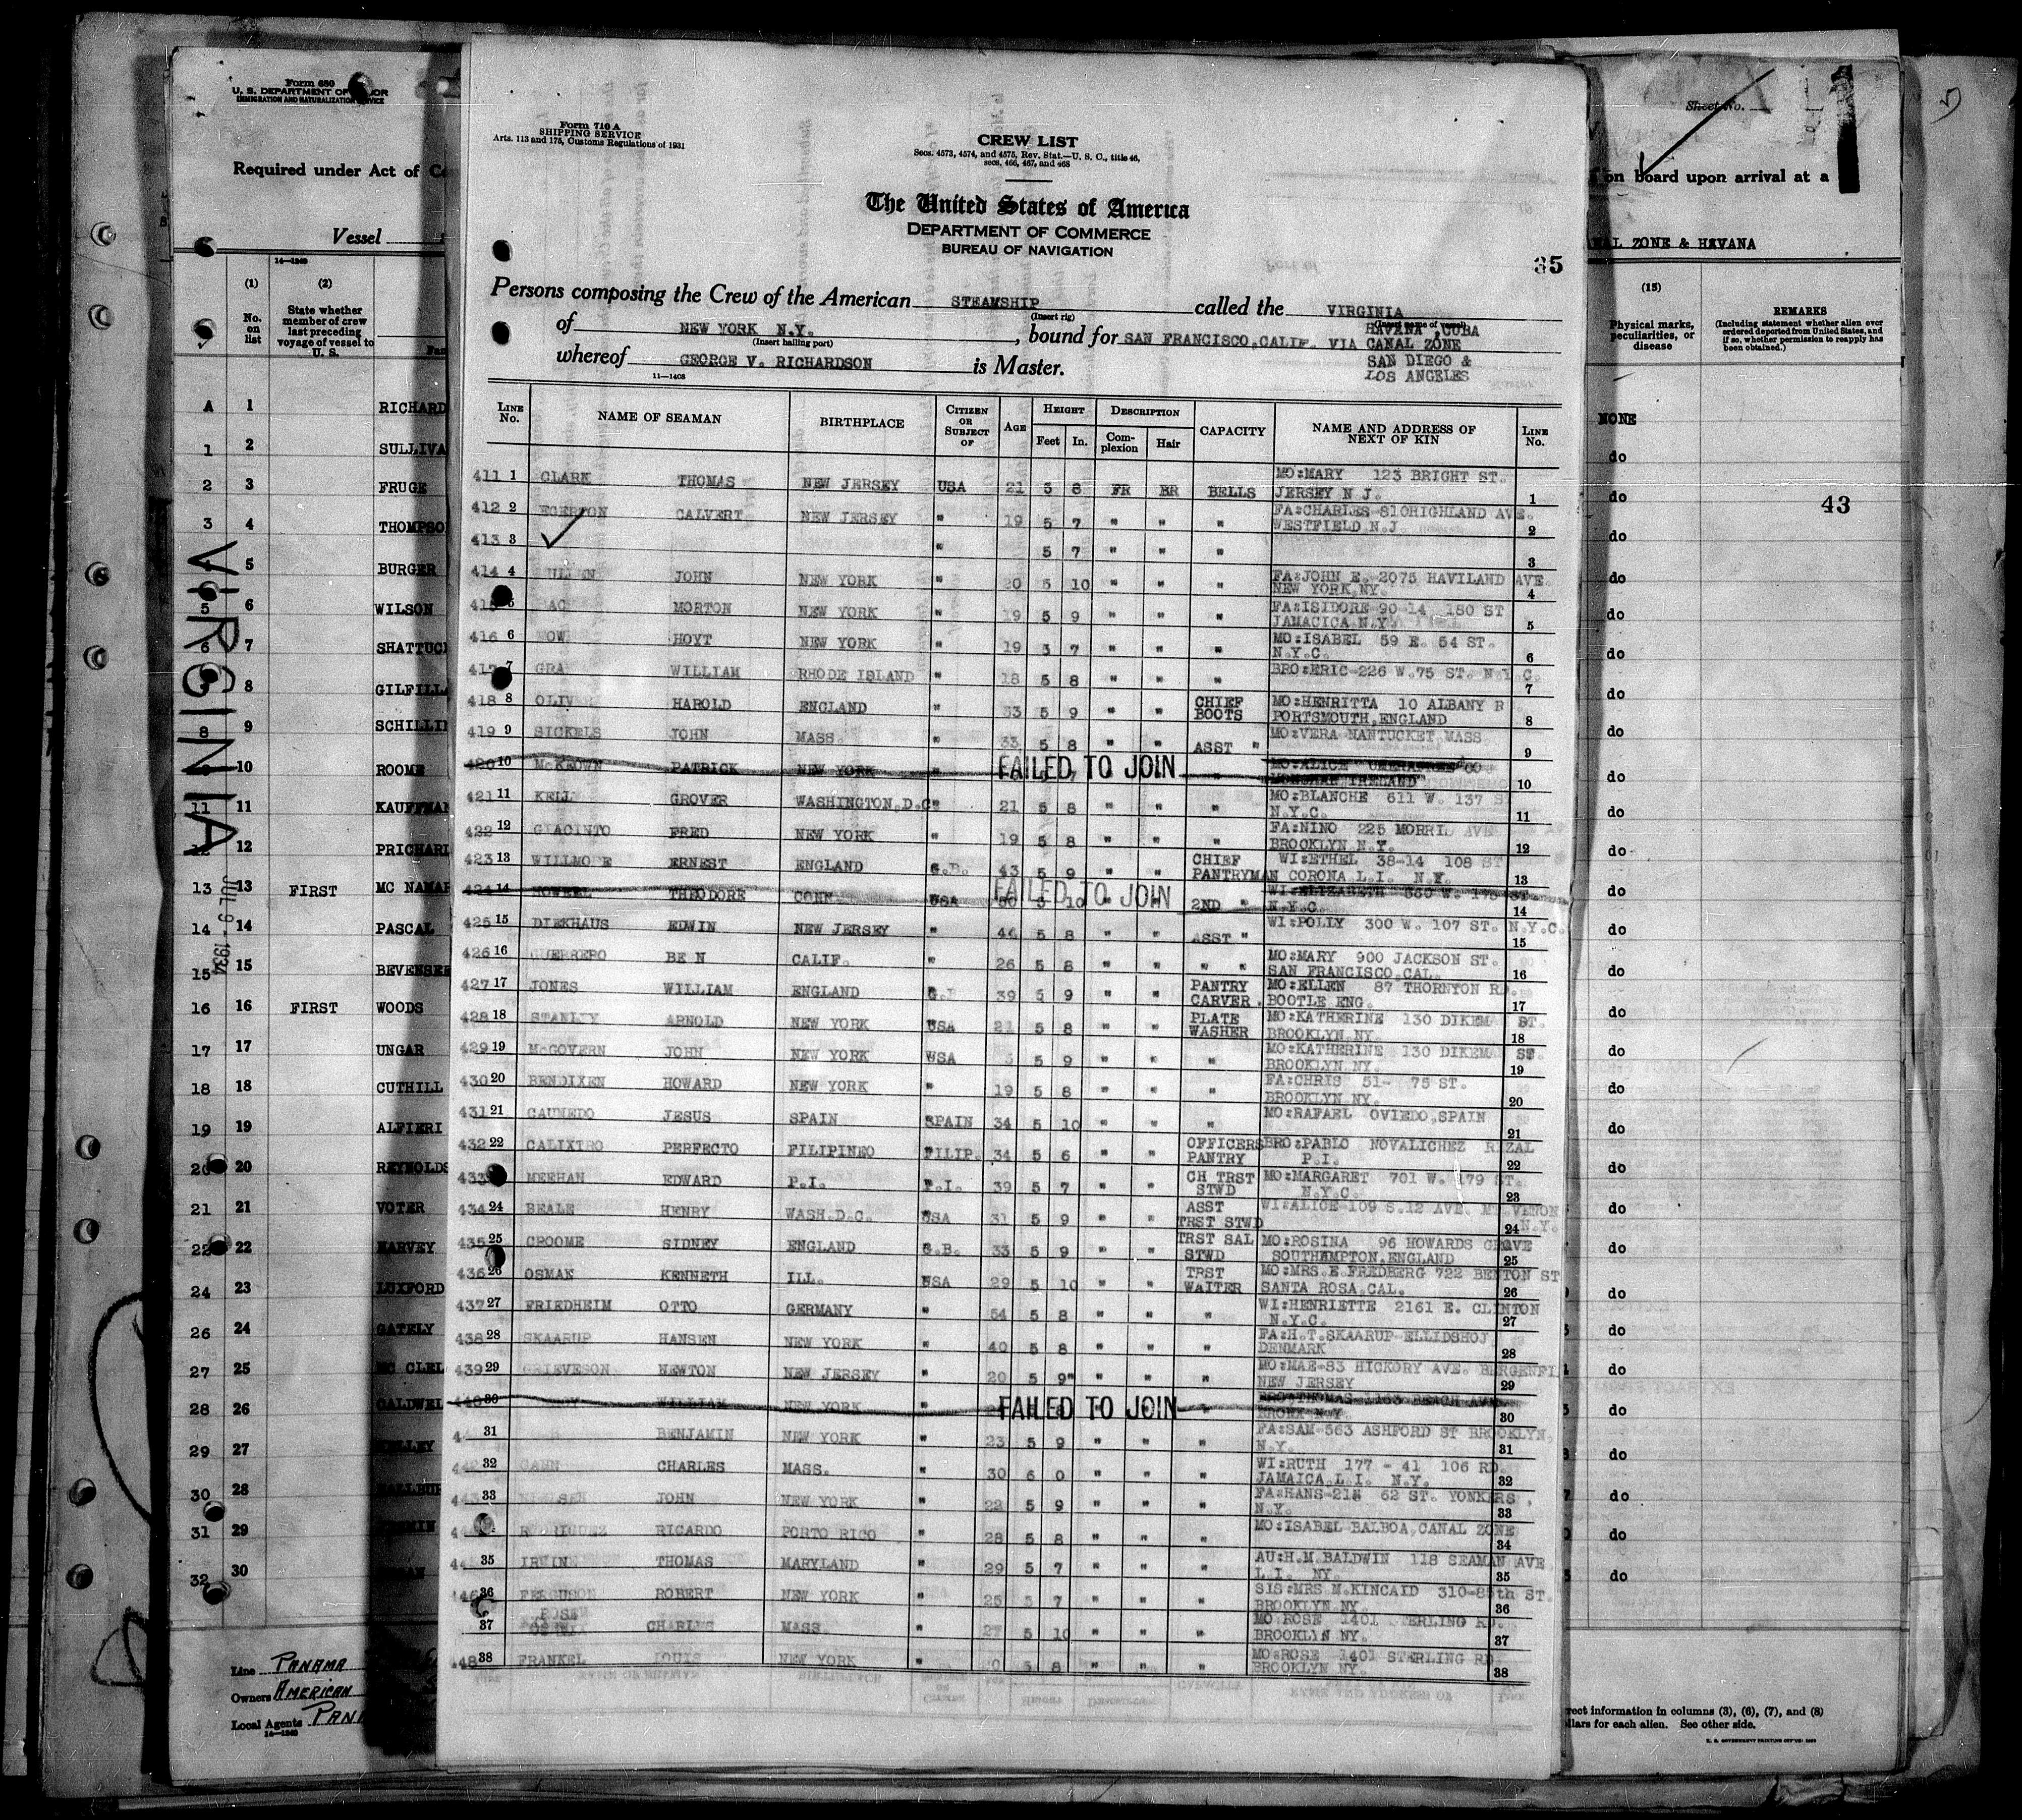 Form 680
U. S. DEPARTMENT OF
IMMIGRATION AND NATURALIZATION SERVICE
Required under Act of
Vessel
14—1240
(1)
(2)
No. on list
State whether member of crew last preceding voyage of vessel to U. S.
A 1 RICHARD
1 2 SULLIVA
2 3 FRUGE
3 4 THOMPSO
5 BURGER
5 6 WILSON
6 7 SHATTUC
8 GILFILL
8 9 SCHILLI
10 ROOME
11 11 KAUFFMAN
12 12 PRICHARD
13 13 FIRST MC NAMAR
14 14 PASCAL
15 15 BEVENSEE
16 16 FIRST WOODS
17 17 UNGAR
18 18 CUTHILL
19 19 ALFIERI
20 20 REYNOLDS
21 21 VOTER
22 22 HARVEY
24 23 LUXFORD
26 24 GATELY
27 25 MC CLEL
28 26 CALDWEL
29 27 KELLEY
30 28
31 29
32 30
VIRGINIA
JUL 9 - 1934
Line PANAMA
Owners AMERICAN
Local Agents PANA
14—1240
Form 710 A
SHIPPING SERVICE
Arts. 113 and 175, Customs Regulations of 1931
CREW LIST
Secs. 4573, 4574, and 4575, Rev. Stat.—U. S. C., title 46,
secs. 466, 467, and 468
The United States of America
DEPARTMENT OF COMMERCE
BUREAU OF NAVIGATION
35
Persons composing the Crew of the American STEAMSHIP called the VIRGINIA
(Insert rig) (Insert name of vessel)
of NEW YORK N.Y. , bound for SAN FRANCISCO,CALIF. VIA HAVANA ,CUBA CANAL ZONE
(Insert hailing port)
whereof GEORGE V. RICHARDSON is Master.
SAN DIEGO &
LOS ANGELES
11—1408
LINE No. NAME OF SEAMAN BIRTHPLACE CITIZEN OR SUBJECT OF AGE HEIGHT DESCRIPTION CAPACITY NAME AND ADDRESS OF NEXT OF KIN LINE No.
Feet In. Complexion Hair
411 1 CLARK THOMAS NEW JERSEY USA 21 5 8 FR BR BELLS MO:MARY 123 BRIGHT ST. JERSEY N J. 1
412 2 EGERTON CALVERT NEW JERSEY " 19 5 7 " " " FA:CHARLES 810HIGHLAND AVE. WESTFIELD N.J. 2
413 3 " 5 7 " " " 3
414 4 JOHN NEW YORK " 20 5 10 " " " FA:JOHN E. 2075 HAVILAND AVE. NEW YORK,NY. 4
415 5 MORTON NEW YORK " 19 5 9 " " " FA:ISIDORE 90-14 180 ST JAMACICA N.Y. 5
416 6 HOYT NEW YORK " 19 5 7 " " " MO:ISABEL 59 E. 54 ST. N.Y.C. 6
417 7 GRA WILLIAM RHODE ISLAND " 18 5 8 " " " BRO:ERIC-226 W.75 ST. N.Y.C. 7
418 8 OLIV HAROLD ENGLAND " 33 5 9 " " CHIEF BOOTS MO:HENRITTA 10 ALBANY R PORTSMOUTH,ENGLAND 8
419 9 SICKELS JOHN MASS. " 33 5 8 " " ASST " MO:VERA NANTUCKET MASS 9
420 10 McKEOWN PATRICK NEW YORK " FAILED TO JOIN " MO:ALICE IRELAND 10
421 11 KELL GROVER WASHINGTON.D.C " 21 5 8 " " " MO:BLANCHE 611 W. 137 S N.Y.C. 11
422 12 GIACINTO FRED NEW YORK " 19 5 8 " " " FA:NINO 225 MORRI AVE BROOKLYN N.Y. 12
423 13 WILLMORE ERNEST ENGLAND G.B. 43 5 9 " " CHIEF PANTRYMAN WI:ETHEL 38-14 108 ST CORONA L.I. N.Y. 13
424 14 HOWELL THEODORE CONN. USA 50 5 10 FAILED TO JOIN 2ND " WI:ELIZABETH 660 W. 178 ST. N.Y.C. 14
425 15 DIEKHAUS EDWIN NEW JERSEY " 44 5 8 " " ASST " WI:POLLY 300 W. 107 ST. N.Y.C. 15
426 16 GUERRERO BEN CALIF. " 26 5 8 " " " " MO:MARY 900 JACKSON ST. SAN FRANCISCO,CAL. 16
427 17 JONES WILLIAM ENGLAND G.B 39 5 9 " " PANTRY CARVER. MO:ELLEN 87 THORNTON RD. BOOTLE ENG. 17
428 18 STANLEY ARNOLD NEW YORK USA 21 5 8 " " PLATE WASHER MO:KATHERINE 130 DIKEM ST. BROOKLYN.NY. 18
429 19 McGOVERN JOHN NEW YORK USA 5 9 " " " MO:KATHERINE 130 DIKEMAN ST. BROOKLYN NY. 19
430 20 BENDIXEN HOWARD NEW YORK " 19 5 8 " " " FA:CHRIS 51- 75 ST. BROOKLYN NY. 20
431 21 CAUNEDO JESUS SPAIN SPAIN 34 5 10 " " " MO:RAFAEL OVIEDO,SPAIN 21
432 22 CALIXTRO PERFECTO FILIPINEO FILIP. 34 5 6 " " OFFICERS PANTRY BRO:PABLO NOVALICHEZ RIZAL P.I. 22
433 MEEHAN EDWARD P.I. P.I. 39 5 7 " " CH TRST STWD MO:MARGARET 701 W. 179 ST. N.Y.C. 23
434 24 BEALE HENRY WASH.D.C. USA 31 5 9 " " ASST TRST STWD WI:ALICE-109 S.12 AVE. MT.VENON N.Y. 24
435 25 CROOME SIDNEY ENGLAND G.B. 33 5 9 " " TRST SAL STWD MO:ROSINA 96 HOWARDS GROVE SOUTHAMPTON,ENGLAND 25
436 26 OSMAK KENNETH ILL. USA 29 5 10 " " TRST WAITER MO:MRS.E.FREDBERG 722 BENTON ST SANTA ROSA,CAL. 26
437 27 FRIEDHEIM OTTO GERMANY " 54 5 8 " " " WI:HENRIETTE 2161 E. CLINTON N.Y.C. 27
438 28 SKAARUP HANSEN NEW YORK " 40 5 8 " " " FA:H.T.SKAARUP-ELLIDSHOJ DENMARK 28
439 29 GRIEVESON NEWTON NEW JERSEY " 20 5 9" " " " MO:MAE-83 HICKORY AVE. BERGENFI NEW JERSEY 29
30 WILLIAM NEW YORK " FAILED TO JOIN " BRO:THOMAS 1163 BEACH AVE BRONX N.Y. 30
31 BENJAMIN NEW YORK " 23 5 9 " " " FA:SAM-563 ASHFORD ST BROOKLYN, N.Y. 31
32 CAHN CHARLES MASS. " 30 6 0 " " " WI:RUTH 177 - 41 106 RD. JAMAICA L.I. N.Y. 32
33 JOHN NEW YORK " 22 5 9 " " " FA:HANS-21 62 ST. YONKERS, N.Y. 33
RODRIGUEZ RICARDO PORTO RICO " 28 5 8 " " " MO:ISABEL BALBOA,CANAL ZONE 34
35 IRVIN THOMAS MARYLAND " 29 5 7 " " " AU:H.M.BALDWIN 118 SEAMAN AVE L.I. NY. 35
36 FERGUSON ROBERT NEW YORK " 25 5 7 " " " SIS:MRS M.KINCAID 310-85th ST. BROOKLYN NY. 36
37 CHARLES MASS. " 27 5 10 " " " MO ROSE 1401 TERLING RD. BROOKLYN NY. 37
448 38 FRANKEL LOUIS NEW YORK " 5 8 " " " MO:ROSE 1401 STERLING RD BROOKLYN NY. 38
Sheet No.
on board upon arrival at a
CANAL ZONE & HAVANA
(15)
Physical marks, peculiarities, or disease
REMARKS
(Including statement whether alien ever ordered deported from United States, and if so, whether permission to reapply has been obtained.)
NONE
do
do
43
do
do
do
do
do
do
do
do
do
do
do
do
do
do
do
do
do
do
do
do
do
do
do
do
do
do
do
rect information in columns (3), (6), (7), and (8)
llars for each alien. See other side.